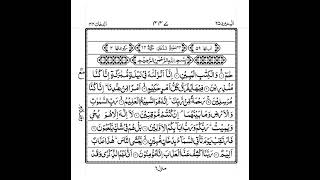 اليه يرد ٢٥
الدخان ٤٤
بِسْمِ اللهِ الرَّحْمٰنِ الرَّحِيْمِ
حٰمٓ وَالْكِتٰبِ الْمُبِيْنِ اِنَّآ اَنْزَلْنٰهُ فِيْ لَيْلَةٍ مُّبٰرَكَةٍ اِنَّا كُنَّا
مُنْذِرِيْنَ فِيْهَا يُفْرَقُ كُلُّ اَمْرٍ حَكِيْمٍ اَمْرًا مِّنْ عِنْدِنَا اِنَّا كُنَّا
مُرْسِلِيْنَ رَحْمَةً مِّنْ رَّبِّكَ اِنَّهٗ هُوَ السَّمِيْعُ الْعَلِيْمُ رَبِّ السَّمٰوٰتِ
وَالْاَرْضِ وَمَا بَيْنَهُمَا اِنْ كُنْتُمْ مُّوْقِنِيْنَ لَآ اِلٰهَ اِلَّا هُوَ يُحْيٖ
وَيُمِيْتُ رَبُّكُمْ وَرَبُّ اٰبَآئِكُمُ الْاَوَّلِيْنَ بَلْ هُمْ فِيْ شَكٍّ يَّلْعَبُوْنَ
فَارْتَقِبْ يَوْمَ تَاْتِي السَّمَآءُ بِدُخَانٍ مُّبِيْنٍ يَّغْشَى النَّاسَ هٰذَا عَذَابٌ
اَلِيْمٌ رَبَّنَا اكْشِفْ عَنَّا الْعَذَابَ اِنَّا مُؤْمِنُوْنَ اَنّٰى لَهُمُ الذِّكْرٰى وَقَدْ
منزل ٦